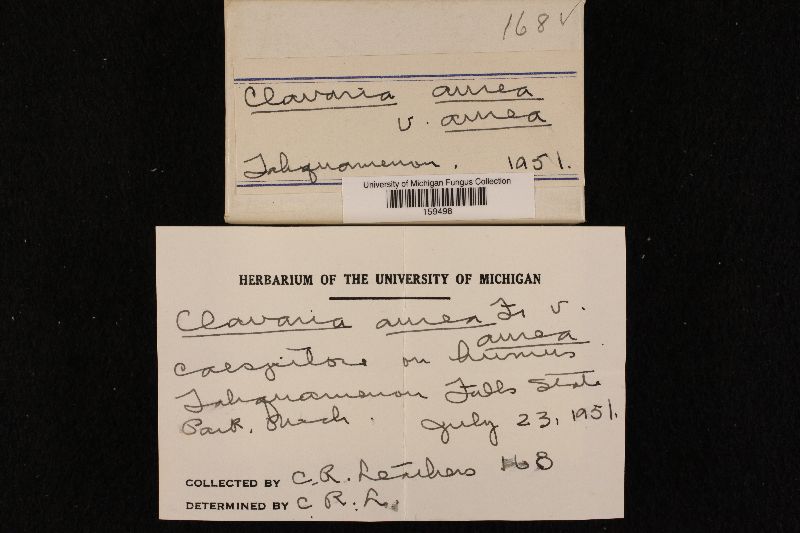 168 ✓
Clavaria aurea
v. aurea
Tahquamenon. 1951.
University of Michigan Fungus Collection
159498
HERBARIUM OF THE UNIVERSITY OF MICHIGAN
Clavaria aurea Fr v.
aurea
caespitose on humus.
Tahquamenon Falls State
Park, Mich. July 23, 1951.
COLLECTED BY C.R. Leathers 168
DETERMINED BY C.R.L.